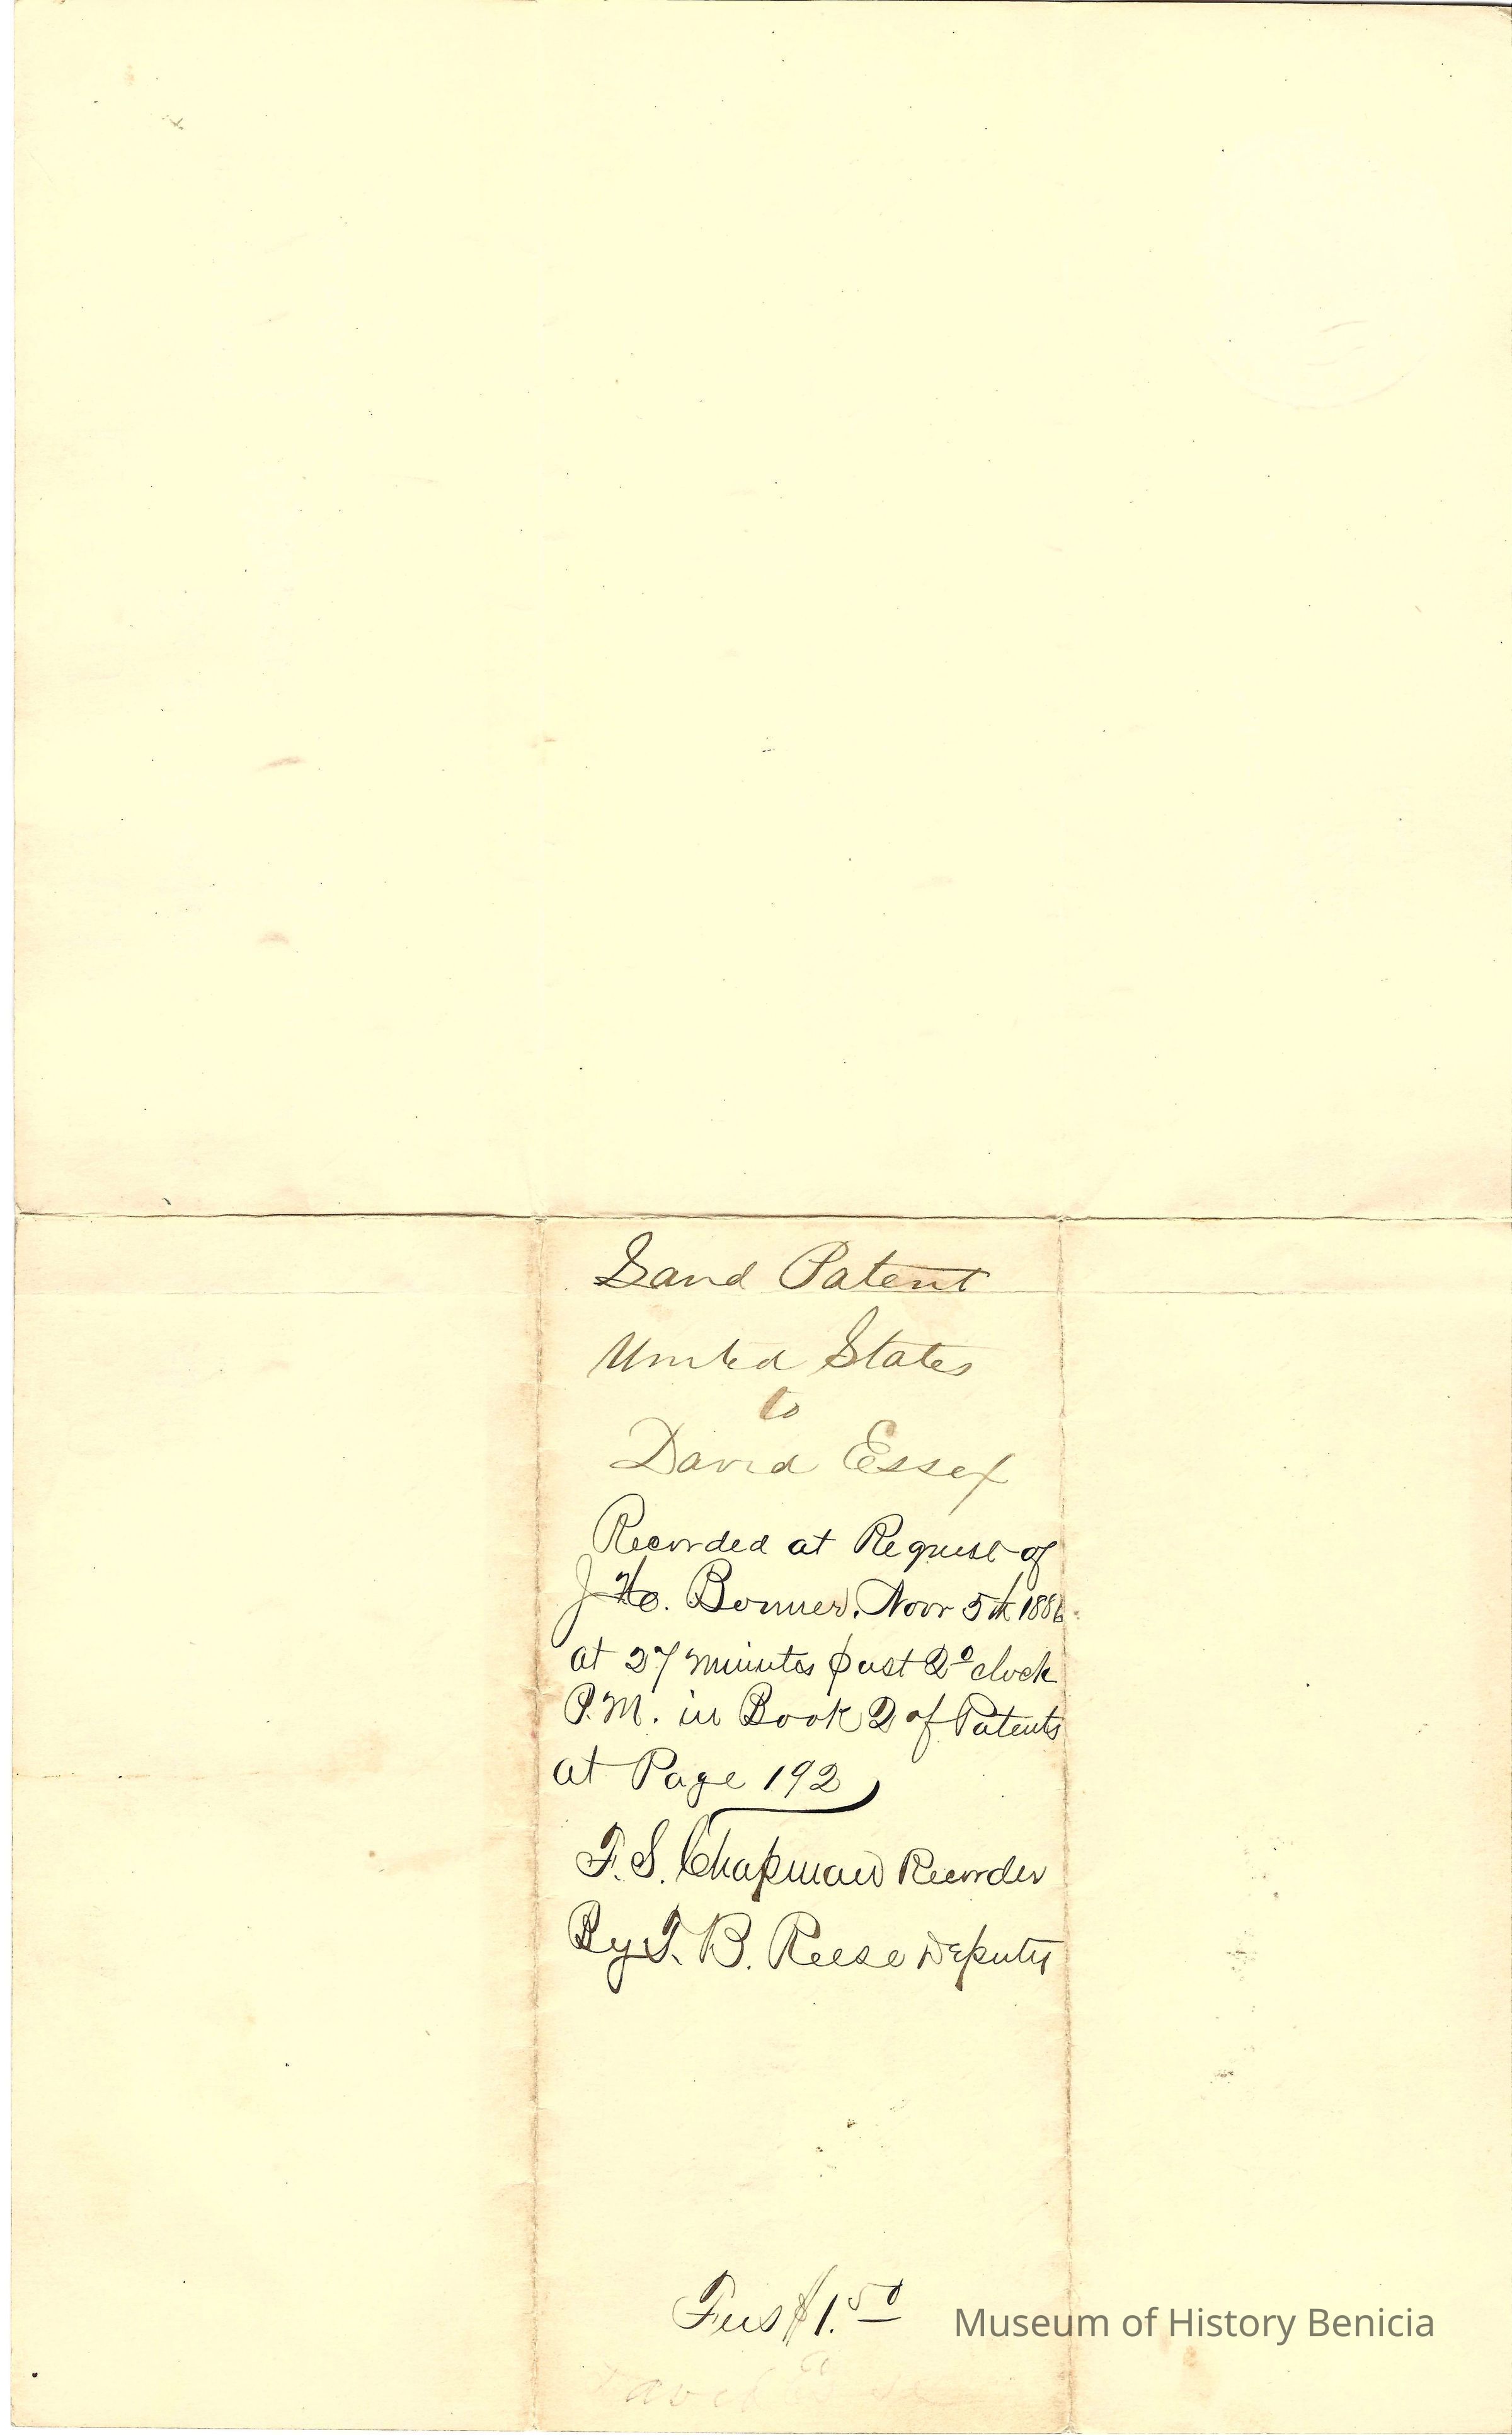 Land Patent
United States
to
David Essex
Recorded at Request of
J Ho. Bonner, Novr 5th 1886
at 27 minutes past 2 o clock
P.M. in Book 2 of Patents
at Page 192
F. S. Chapman Recorder
By F. B. Reese Deputy
Fees $1.50
Museum of History Benicia